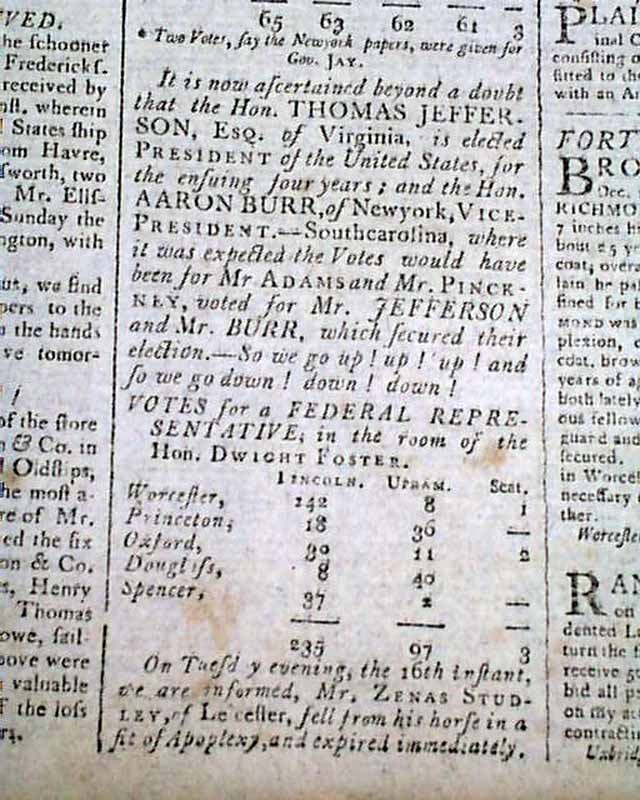 VED.
he ſchooner
Fredericks.
received by
nſt. wherein
States ſhip
om Havre,
ſworth, two
Mr. Ellſ-
Sunday the
ngton, with
ut, we find
pers to the
n the hands
ve tomor-
!
of the ſtore
& Co. in
Oldſlips,
he moſt a-
re of Mr.
ed the ſix
on & Co.
s, Henry
Thomas
owe, ſail-
bove were
valuable
f the loſs
65 63 62 61 3
* Two Votes, ſay the Newyork papers, were given for
Gov. JAY.
It is now aſcertained beyond a doubt
that the Hon. THOMAS JEFFER-
SON, ESQ. of Virginia, is elected
PRESIDENT of the United States, for
the enſuing four years; and the Hon.
AARON BURR, of Newyork, VICE-
PRESIDENT.—Southcarolina, where
it was expected the Votes would have
been for Mr ADAMS and Mr. PINCK-
NEY, voted for Mr. JEFFERSON
and Mr. BURR, which ſecured their
election.—So we go up! up! up! and
ſo we go down! down! down!
VOTES for a FEDERAL REPRE-
SENTATIVE, in the room of the
Hon. DWIGHT FOSTER.
LINCOLN. UPHAM. Scat.
Worceſter, 142 8 1
Princeton, 18 36 —
Oxford, 30 11 2
Douglſs, 8 40
Spencer, 37 2 —
235 97 3
On Tueſd y evening, the 16th inſtant,
we are informed, Mr. ZENAS STUD-
LEY, of Leiceſter, fell from his horſe in a
fit of Apoplexy, and expired immediately.
PLAI
inal C
conſiſting o
fitted to th
with an A
FORT
BRO
Dec.
RICHMO
7 inches hi
bout 25 ye
coat, over
tain be pa
fined for
MOND was
plexion, c
coat, brow
years of a
both lately
ous fellow
guard and
ſecured.
in Worceſ
neceſſary
ther.
Worceſter
RAN
on
dented La
turn the ſ
receive 50
bid all p
on my ac
contracti
Uxbrid